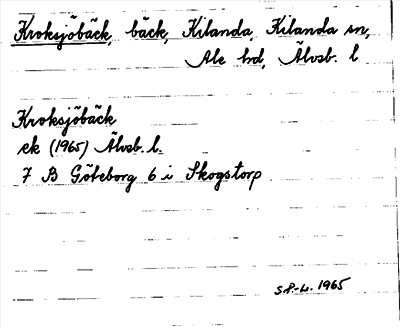 Kroksjöbäck, bäck, Kilanda, Kilanda sn,
Ale hd, Älvsb. l
Kroksjöbäck
ek (1965) Älvsb. l.
7 B Göteborg 6 i Skogstorp
S.P.-L. 1965